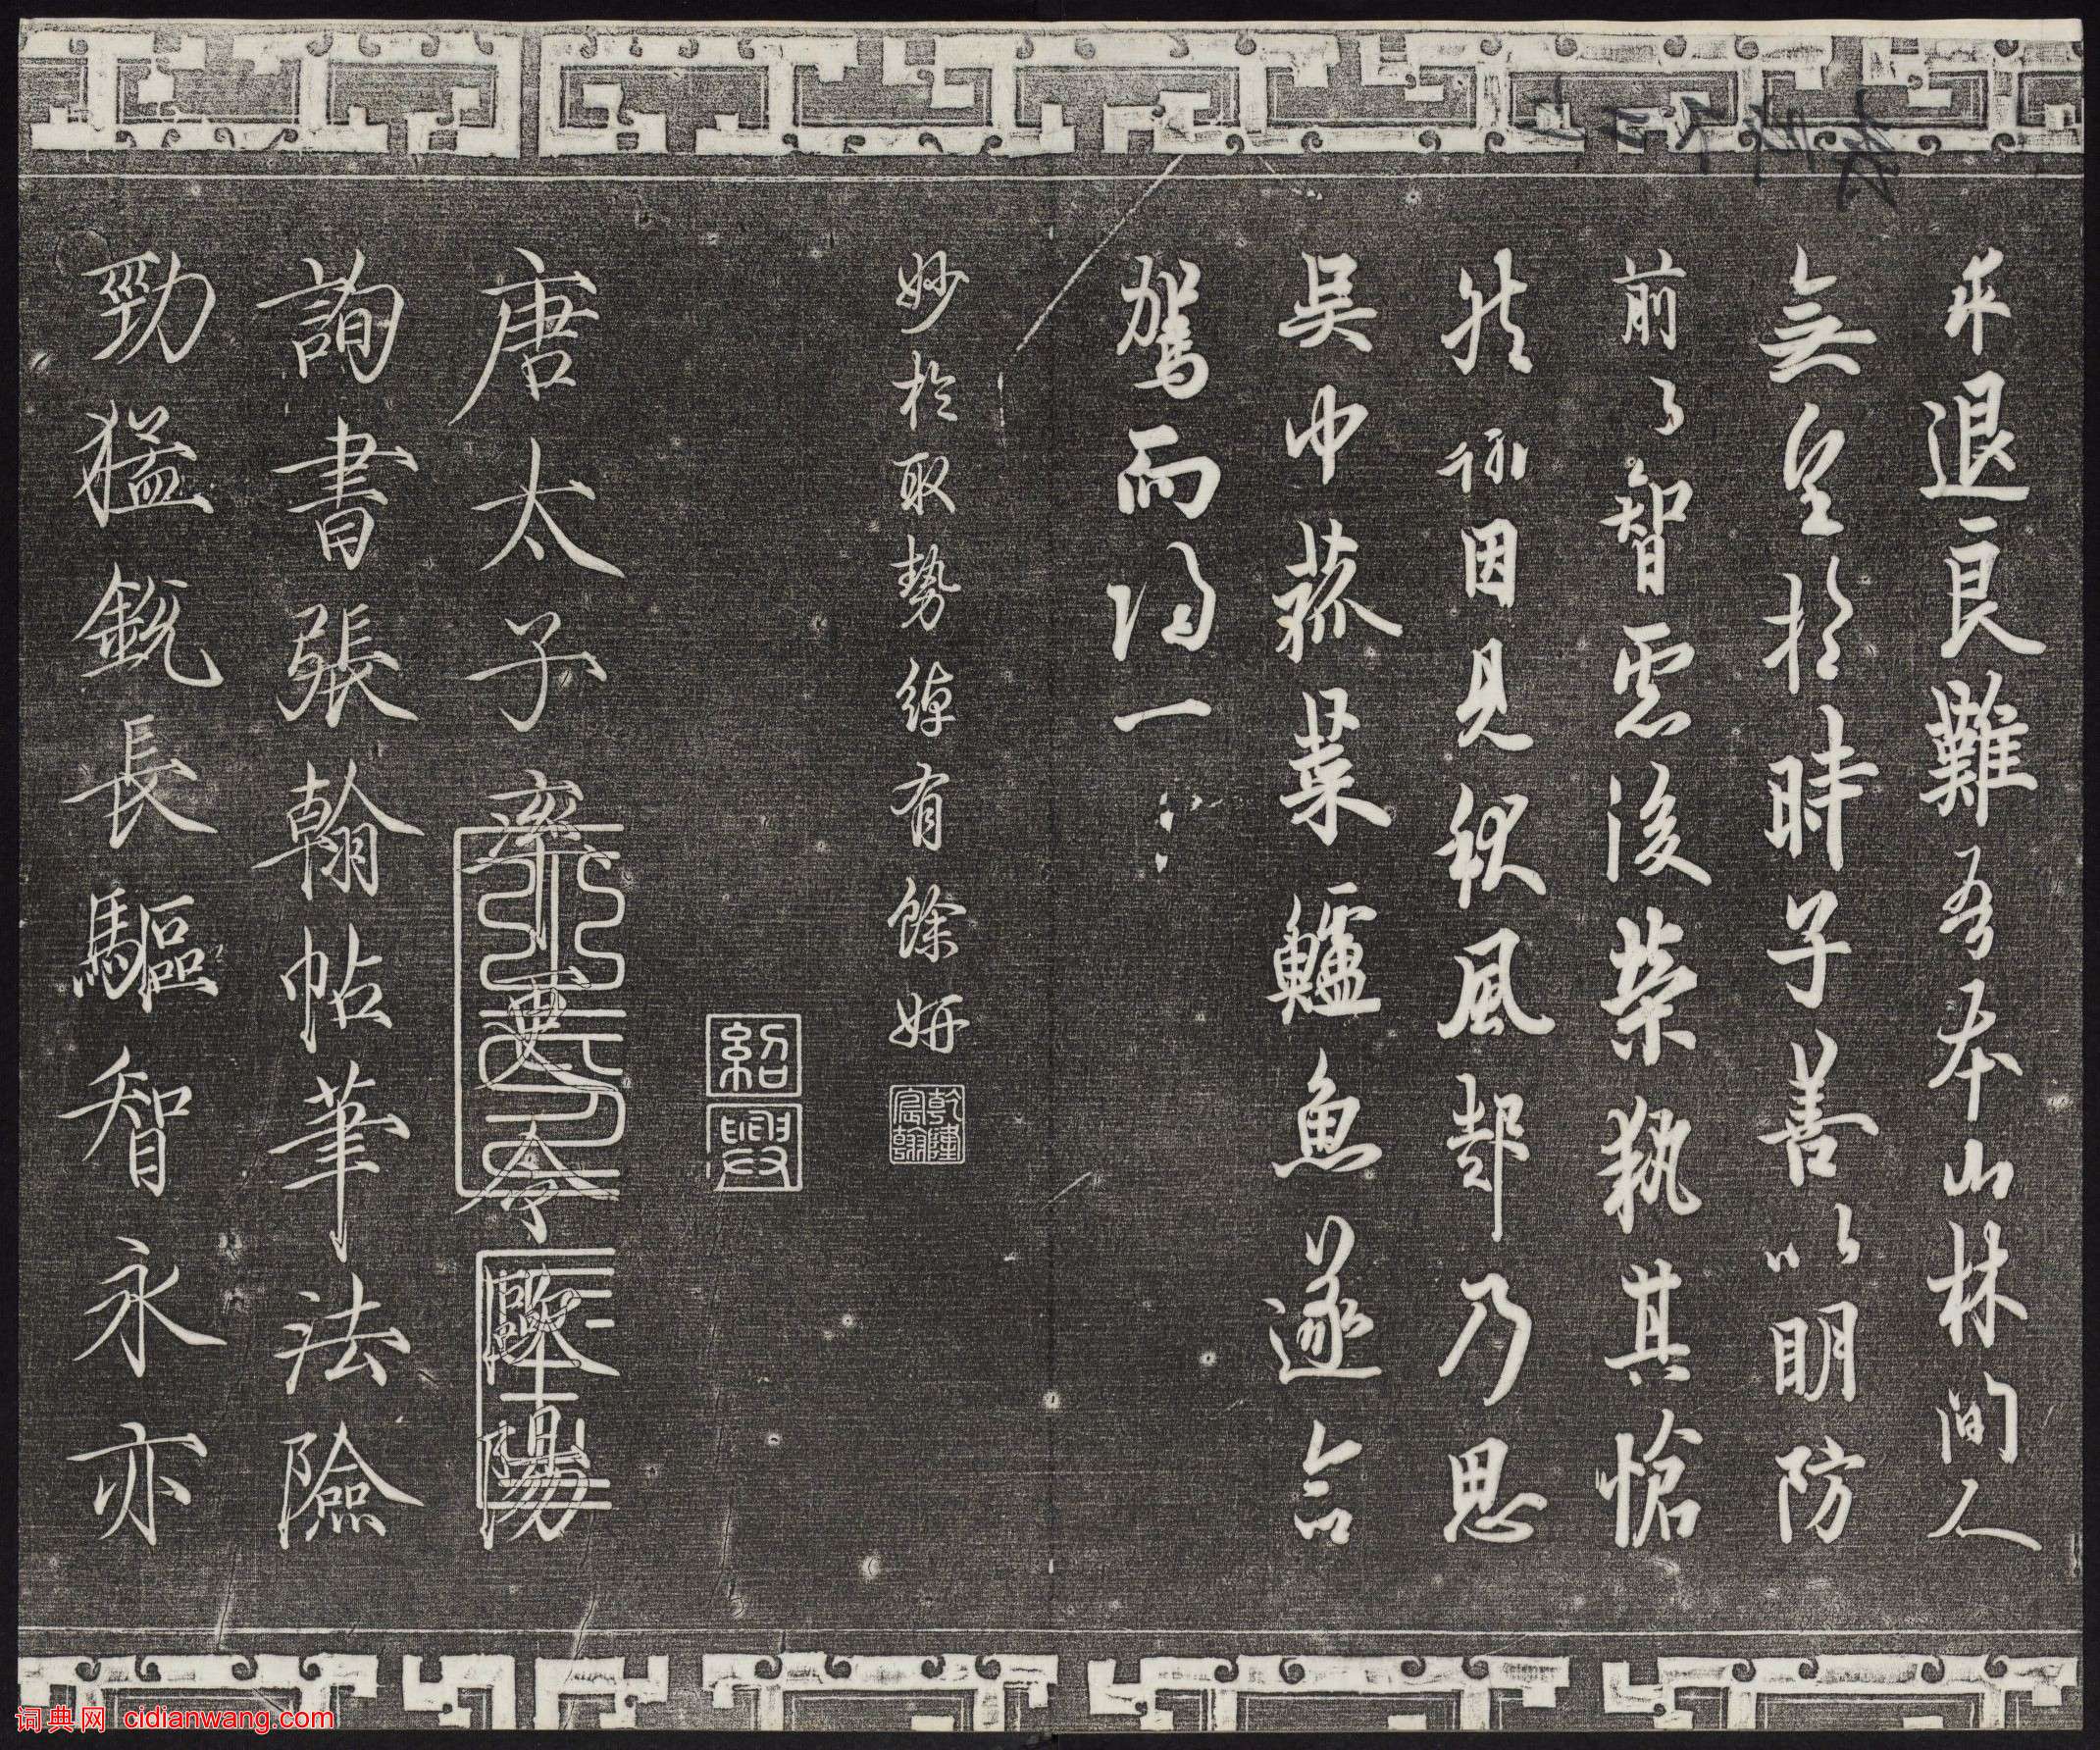 求退良難吾本山林間人
無望於時子善以明防
前以智慮後榮執其愴
然翰因見秋風起乃思
吳中菰菜鱸魚遂命
駕而歸一
妙於取勢綽有餘妍
乾隆宸翰
紹興
唐太子率更令歐陽
詢書張翰帖筆法險
勁猛銳長驅智永亦
词典网 cidianwang.com